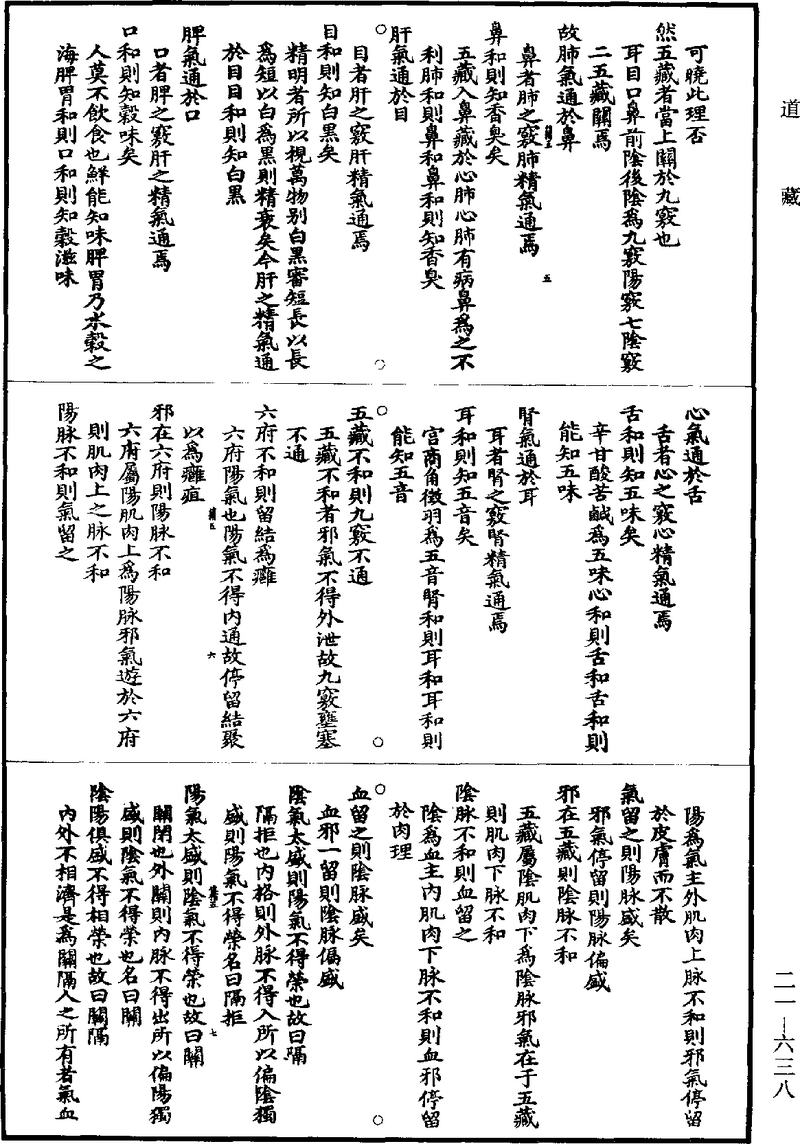 道藏
可曉此理否
然五藏者當上關於九竅也
耳目口鼻前陰後陰爲九竅陽竅七陰竅
二五藏關焉
故肺氣通於鼻
鼻者肺之竅肺精氣通焉
五
鼻和則知香臭矣
五藏入鼻藏於心肺心肺有病鼻爲之不
利肺和則鼻和鼻和則知香臭
肝氣通於目
目者肝之竅肝精氣通焉
目和則知白黑矣
精明者所以視萬物别白黑審短長以長
爲短以白爲黑則精衰矣今肝之精氣通
於目目和則知白黑
脾氣通於口
口者脾之竅肝之精氣通焉
口和則知穀味矣
人莫不飲食也鮮能知味脾胃乃水穀之
海脾胃和則口和則知穀滋味
心氣通於舌
舌者心之竅心精氣通焉
舌和則知五味矣
辛甘酸苦鹹爲五味心和則舌和舌和則
能知五味
腎氣通於耳
耳者腎之竅腎精氣通焉
耳和則知五音矣
宫商角徵羽爲五音腎和則耳和耳和則
能知五音
五藏不和則九竅不通
五藏不和者邪氣不得外泄故九竅壅塞
不通
六府不和則留結爲癰
六府陽氣也陽氣不得内通故停留結聚
六
以爲癰疽
邪在六府則陽脉不和
六府屬陽肌肉上爲陽脉邪氣遊於六府
則肌肉上之脉不和
陽脉不和則氣留之
陽爲氣主外肌肉上脉不和則邪氣停留
於皮膚而不散
氣留之則陽脉盛矣
邪氣停留則陽脉偏盛
邪在五藏則陰脉不和
五藏屬陰肌肉下爲陰脉邪氣在于五藏
則肌肉下脉不和
陰脉不和則血留之
陰爲血主内肌肉下脉不和則血邪停留
於肉理
血留之則陰脉盛矣
血邪一留則陰脉偏盛
陰氣太盛則陽氣不得榮也故曰隔
隔拒也内格則外脉不得入所以偏陰獨
盛則陽氣不得榮名曰隔拒
陽氣太盛則陰氣不得榮也故曰關
七
關閉也外關則内脉不得出所以偏陽獨
盛則陰氣不得榮也名曰關
陰陽俱盛不得相榮也故曰關隔
内外不相濟是爲關隔人之所有者氣血
二一—六三八